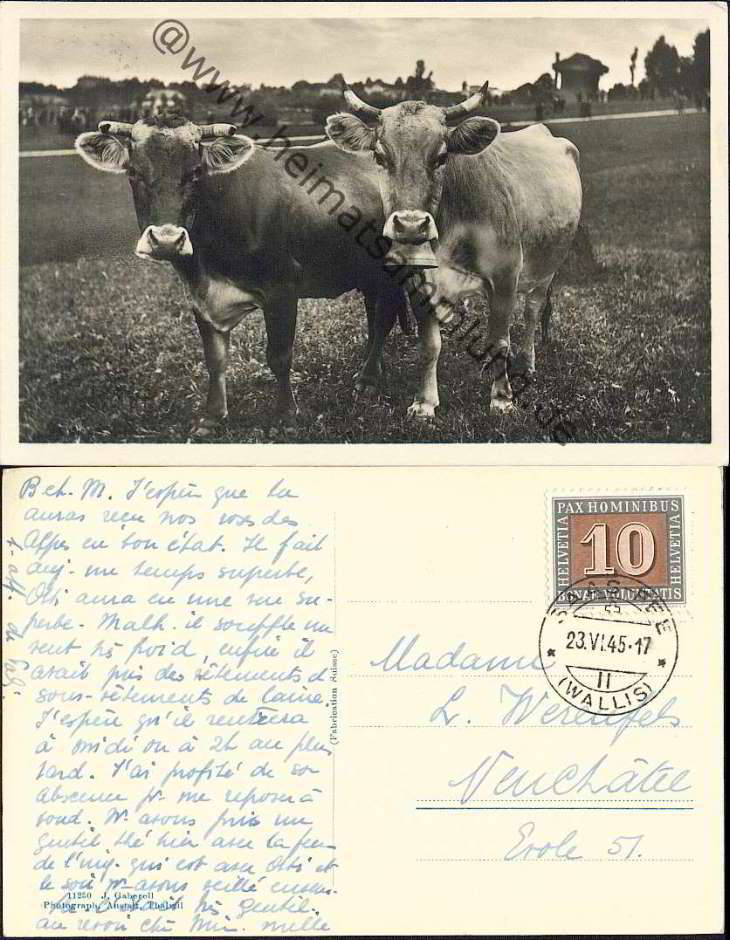 @www.heimatsammlung.de
Bet. M. J'espère que tu
auras reçu nos roses des
Alpes en bon état. Il fait
auj. un temps superbe,
Oti aura eu une vue su-
perbe. Malh. il souffle un
vent très froid, enfin il
avait pris des vêtements &
sous-vêtements de laine.
J'espère qu'il rentrera
à midi ou à 2h au plus
tard. J'ai profité de son
absence pr. me reposer à
fond. Ns avons pris un
gentil thé hier avec la
de l'ing. qui est avec Oti et
le soir ns avons veillé
très gentil.
au revoir mille
11250 J. Gaberell
Photograph. Anstalt, Thalwil
(Fabrication Suisse)
PAX HOMINIBUS
HELVETIA 10 HELVETIA
BONAE VOLUNTATIS
23.VI.45-17
II
(WALLIS)
Madame
L. Werenfels
Neuchâtel
Evole 51.